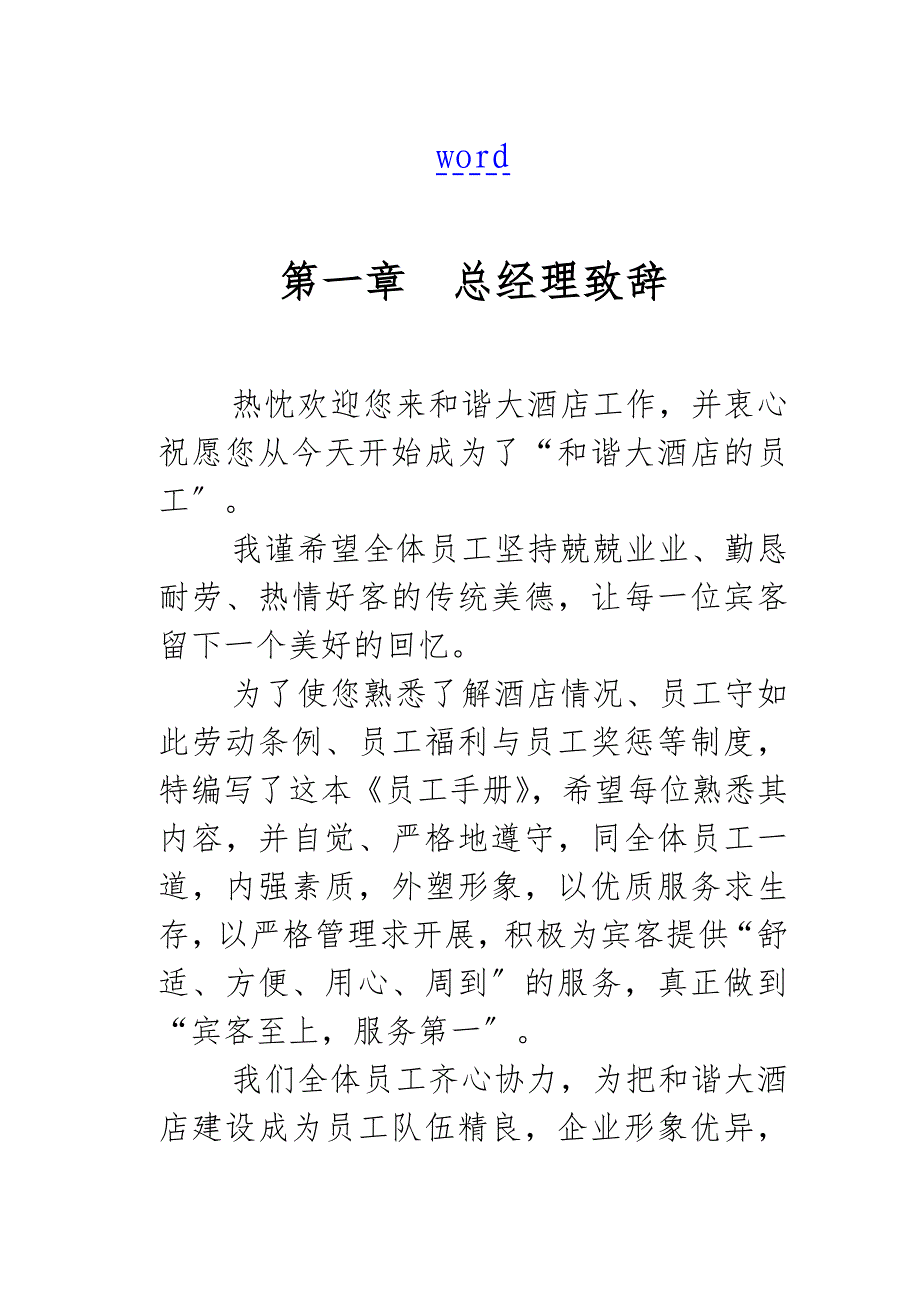 word
第一章　总经理致辞
热忱欢迎您来和谐大酒店工作，并衷心
祝愿您从今天开始成为了“和谐大酒店的员
工〞。
我谨希望全体员工坚持兢兢业业、勤恳
耐劳、热情好客的传统美德，让每一位宾客
留下一个美好的回忆。
为了使您熟悉了解酒店情况、员工守如
此劳动条例、员工福利与员工奖惩等制度，
特编写了这本《员工手册》，希望每位熟悉其
内容，并自觉、严格地遵守，同全体员工一
道，内强素质，外塑形象，以优质服务求生
存，以严格管理求开展，积极为宾客提供“舒
适、方便、用心、周到〞的服务，真正做到
“宾客至上，服务第一〞。
我们全体员工齐心协力，为把和谐大酒
店建设成为员工队伍精良，企业形象优异，